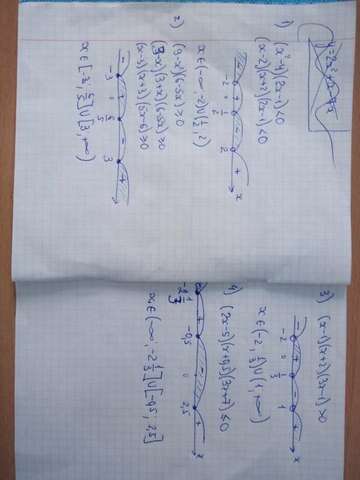 y=2x²+x-8x
1)
(x²-4)(2x-1)<0
(x-2)(x+2)(2x-1)<0
- + - +
-2 1/2 2 x
x∈(-∞; -2)∪(1/2; 2)
2)
(9-x²)(6-5x)≥0
(3-x)(3+x)(6-5x)≥0
(x-3)(x+3)(5x-6)≥0
- + - +
-3 6/5 3 x
x∈[-3; 6/5]∪[3; +∞)
3) (x-1)(x+2)(3x-1)>0
- + - +
-2 0 1/3 1 x
x∈(-2; 1/3)∪(1; +∞)
4) (2x-5)(x+0,5)(3x+7)≤0
- + - +
-2 1/3 -0,5 0 2,5 x
x∈(-∞; -2 1/3]∪[-0,5; 2,5]